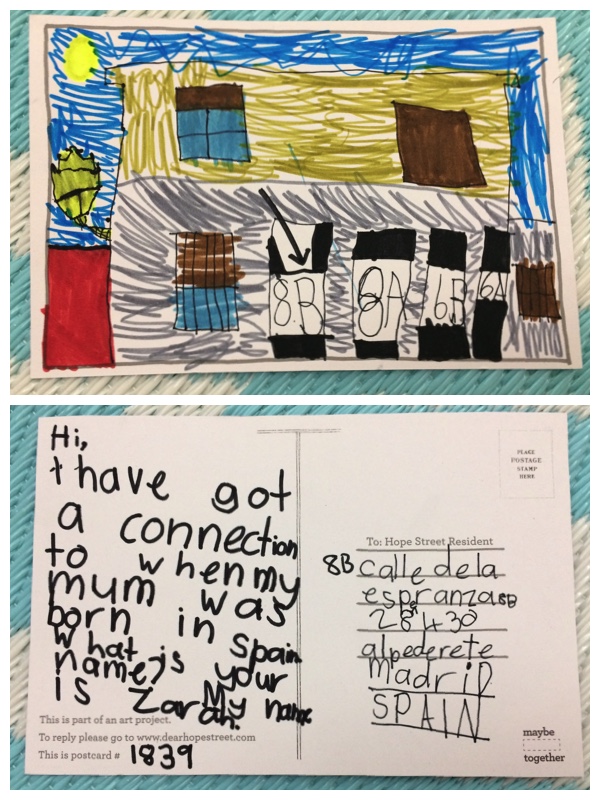 8.B 8A 6B 6A
Hi,
I have got
a connection
to when my
mum was
born in Spain
What is your
name? My name
is Zarah.
This is part of an art project.
To reply please go to www.dearhopestreet.com
This is postcard # 1839
PLACE
POSTAGE
STAMP
HERE
To: Hope Street Resident
8B calle de la
espranza 8B
28430
alpederete
madrid
SPAIN
maybe
together